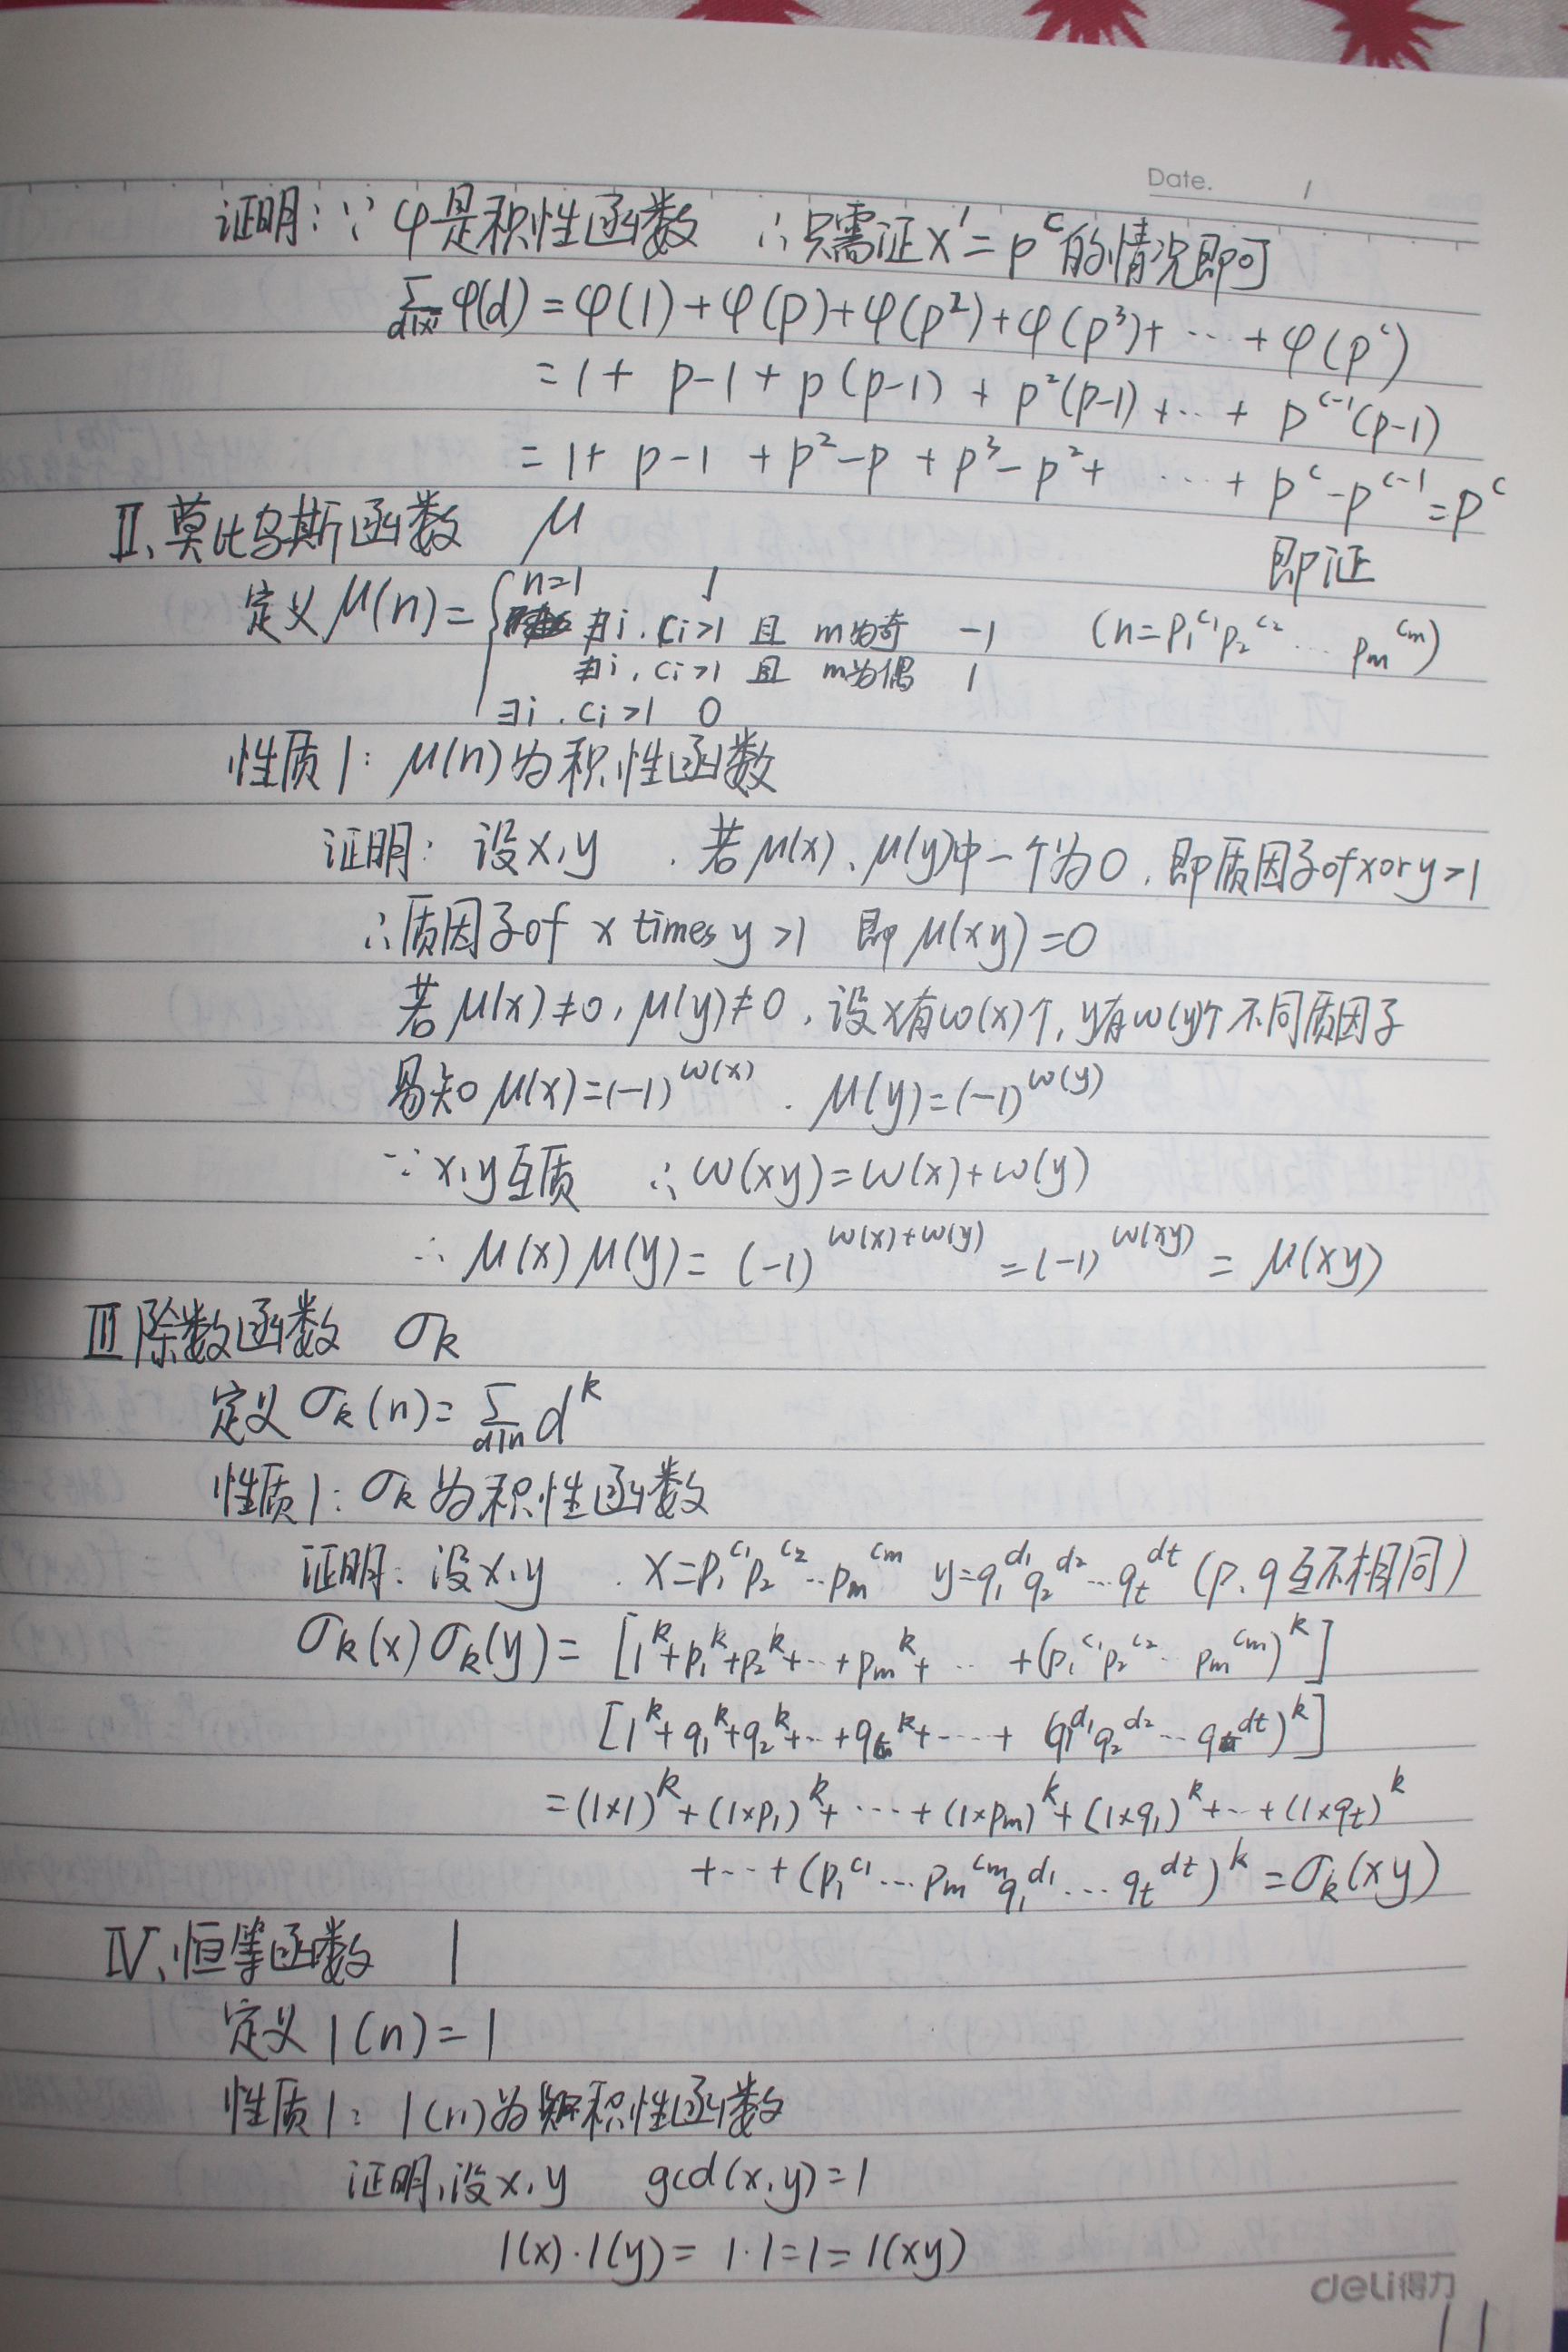 Date. /
证明:∵φ是积性函数 ∴只需证x'=p^c的情况即可
∑_{d|x'} φ(d)=φ(1)+φ(p)+φ(p²)+φ(p³)+…+φ(p^c)
=1+p-1+p(p-1)+p²(p-1)+…+p^{c-1}(p-1)
=1+p-1+p²-p+p³-p²+…+p^c-p^{c-1}=p^c
Ⅱ、莫比乌斯函数 μ
即证
定义μ(n)={ n=1 1
∄i,ci>1 且 m为奇 -1 (n=p₁^{c₁}p₂^{c₂}…p_m^{c_m})
∄i,ci>1 且 m为偶 1
∃i,ci>1 0
性质1:μ(n)为积性函数
证明:设x,y .若μ(x)、μ(y)中一个为0,即质因子of x or y>1
∴质因子of x times y>1 即μ(xy)=0
若μ(x)≠0,μ(y)≠0,设x有ω(x)个,y有ω(y)个不同质因子
易知μ(x)=(-1)^{ω(x)}.μ(y)=(-1)^{ω(y)}
∵x,y互质 ∴ω(xy)=ω(x)+ω(y)
∴μ(x)μ(y)=(-1)^{ω(x)+ω(y)}=(-1)^{ω(xy)}=μ(xy)
Ⅲ除数函数 σ_k
定义σ_k(n)=∑_{d|n} d^k
性质1:σ_k为积性函数
证明:设x,y .x=p₁^{c₁}p₂^{c₂}…p_m^{c_m} y=q₁^{d₁}q₂^{d₂}…q_t^{d_t}(p、q互不相同)
σ_k(x)σ_k(y)=[1^k+p₁^k+p₂^k+…+p_m^k+…+(p₁^{c₁}p₂^{c₂}…p_m^{c_m})^k]
[1^k+q₁^k+q₂^k+…+q_t^k+…+(q₁^{d₁}q₂^{d₂}…q_t^{d_t})^k]
=(1×1)^k+(1×p₁)^k+…+(1×p_m)^k+(1×q₁)^k+…+(1×q_t)^k
+…+(p₁^{c₁}…p_m^{c_m}q₁^{d₁}…q_t^{d_t})^k=σ_k(xy)
Ⅳ、恒等函数 1
定义1(n)=1
性质1:1(n)为积性函数
证明,设x,y gcd(x,y)=1
1(x)·1(y)=1·1=1=1(xy)
deli得力
11